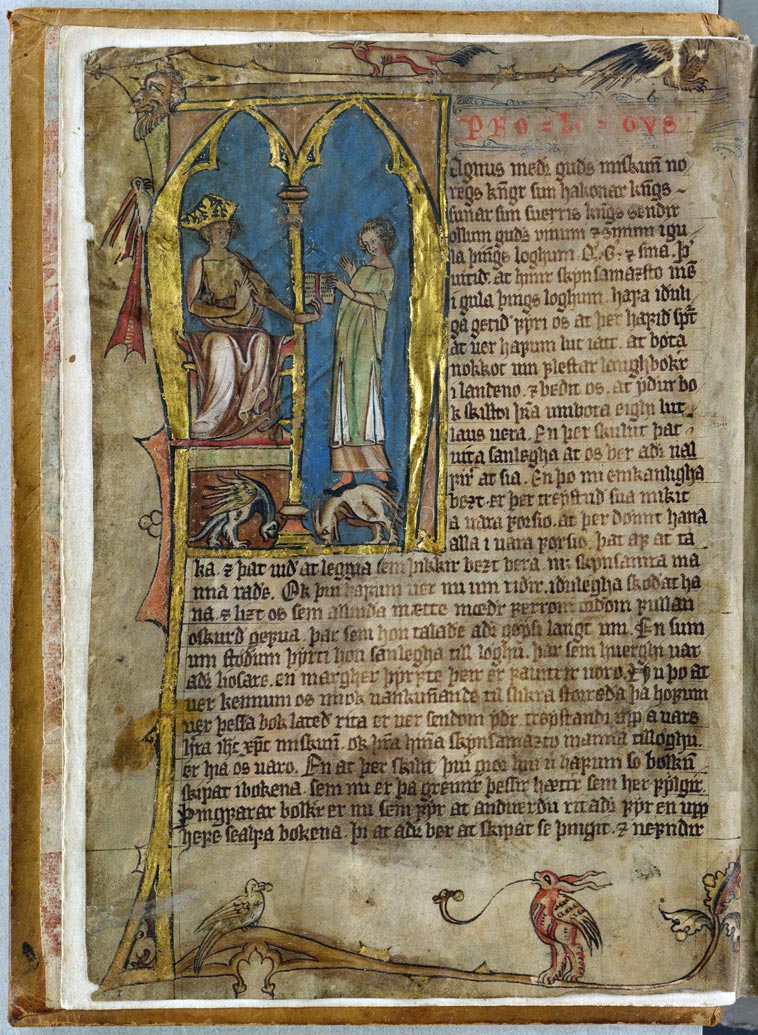 PRO = L = OVS
agnus medr guds miskunn no
regs kongr sun hakonar kongs
sunar sun suerris kongs sendir
ollum guds uinum ⁊ sinum i gu
la þings loghum. Q. G. ⁊ sina. þ
uitid. at hinir skynsamazsto menn
i gula þings loghum. hafa iduli
ga getid fyrir os at her hafid spurt
at uer hafum lut i att. at bøta
nokkot um flestar laughbøkr
i landeno. ⁊ bedit os. at ydur bo
k skilldi hafa umbota eighi lut
laus uera. En þer skulut þat
uita sanlegha at os ber adr uæl
fyrir at sia. En þo nu einkanligha
bezt. er þer treystud sua mikit
a uara forsio. at þer domit hana
alla i uara forsio. þat af at ta
ka. ⁊ þat uid at leggia sem þikkir bezt uera. medr skynsamra ma
nna rade. Ok þui hafum uer nu um ridir. idulegha skodat ha
na. ⁊ lizt os sem allunda mætte mœdr ferrom ordom fullan
oskurd gefua. þar sem hon talade adr gøysi langt um. En sum
um stødum þyrfti hon sanlegha till loghu. þar sem huerghi uar
adr hosare. en margher þyrfte þeir er fauitrir uoro. Ok þo at
uer kennum os miok uankunnande til slikra storreda þa hofum
uer þessa bok lated rita er uer sendom ydr. treystandi upp a uars
herra ihc xpc miskunn. ok hera hinna skynsamazto manna tilloghu.
er hia os uaro. En at þer skilit þui giorr hui uer hafum so bolkum
skipat i bokena. sem nu er þa greinir þessir hættir sem her fylgir.
Þingfarar bolkr er nu sem fyr at anduerdu ritadr fyr en upp
hefe sealfa bokena. þi at adr ber at skipat se þingit. ⁊ nefndir